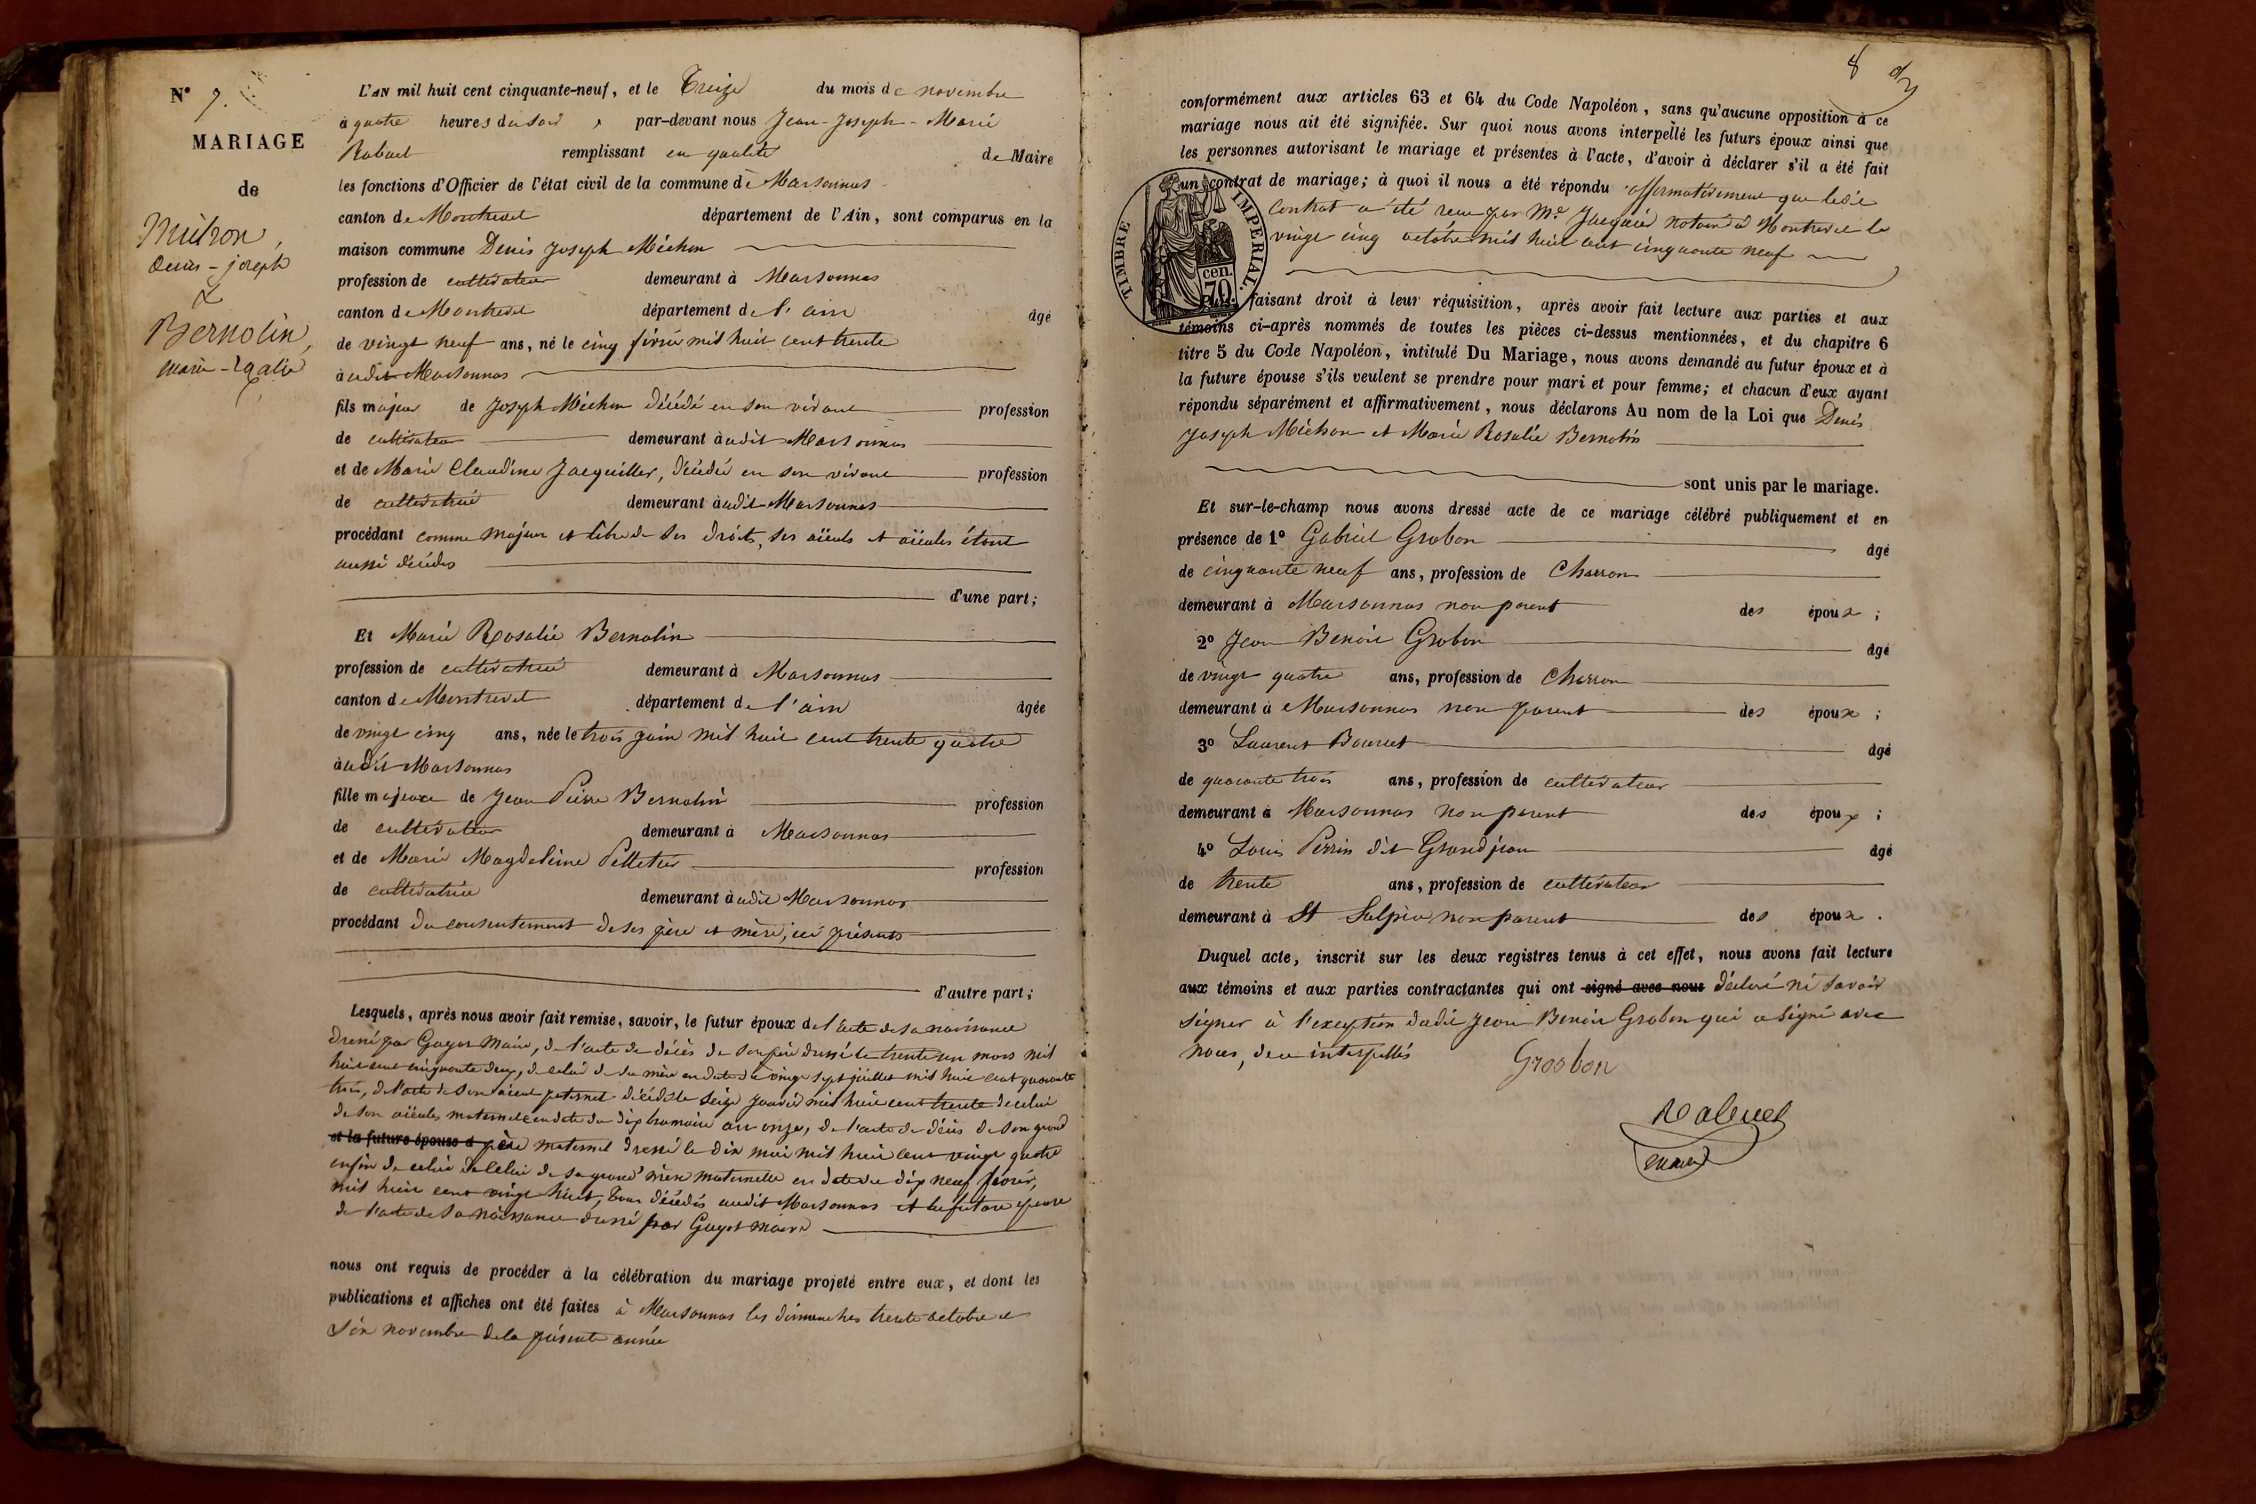 N° 7.
MARIAGE
de
Michon,
Denis-joseph
&
Bernolin,
marie-rosalie
L'AN mil huit cent cinquante-neuf, et le Treize du mois de novembre
à quatre heures du soir, par-devant nous Jean-Joseph-Marie
Rabuel remplissant en qualité de Maire
les fonctions d'Officier de l'état civil de la commune de Marsonnas
canton de Montrevel département de l'Ain, sont comparus en la
maison commune Denis Joseph Michon
profession de cultivateur demeurant à Marsonnas
canton de Montrevel département de l'ain âgé
de vingt neuf ans, né le cinq février mil huit cent trente
à udit Marsonnas
fils majeur de Joseph Michon décédé en son vivant profession
de cultivateur demeurant à udit Marsonnas
et de Marie Claudine Jacquiller, décédée en son vivant profession
de cultivatrice demeurant à udit Marsonnas
procédant comme majeur et libre de ses droits, ses aïeuls et aïeules étant
aussi décédés
d'une part;
Et Marie Rosalie Bernolin
profession de cultivatrice demeurant à Marsonnas
canton de Montrevel département de l'ain âgée
de vingt cinq ans, née le trois juin mil huit cent trente quatre
à udit Marsonnas
fille majeure de Jean Pierre Bernolin profession
de cultivateur demeurant à Marsonnas
et de Marie Magdeleine Pelletier profession
de cultivatrice demeurant à udit Marsonnas
procédant du consentement de ses père et mère, ici présents
d'autre part;
Lesquels, après nous avoir fait remise, savoir, le futur époux de l'acte de sa naissance
dressé par Guyot Maire, de l'acte de décès de son père dressé le trente un mars mil
huit cent cinquante deux, de celui de sa mère en date du vingt sept juillet mil huit cent quarante
trois, de l'acte de son aïeul paternel décédé le seize janvier mil huit cent trente de celui
de son aïeule maternelle en date du dix brumaire an onze, de l'acte de décès de son grand
et la future épouse d père maternel dressé le dix mai mil huit cent vingt quatre
enfin de celui de celui de sa grand'mère maternelle en date du dix neuf février,
mil huit cent vingt huit, tous décédés audit Marsonnas et la future épouse
de l'acte de sa naissance dressé par Guyot maire
nous ont requis de procéder à la célébration du mariage projeté entre eux, et dont les
publications et affiches ont été faites à Marsonnas les dimanches trente octobre et
six novembre de la présente année
8
conformément aux articles 63 et 64 du Code Napoléon, sans qu'aucune opposition à ce
mariage nous ait été signifiée. Sur quoi nous avons interpellé les futurs époux ainsi que
les personnes autorisant le mariage et présentes à l'acte, d'avoir à déclarer s'il a été fait
un contrat de mariage; à quoi il nous a été répondu affirmativement que ledit
contrat a été reçu par Me Jacquier notaire à Montrevel le
vingt cinq octobre mil huit cent cinquante neuf
TIMBRE IMPERIAL
70 cen.
Puis, faisant droit à leur réquisition, après avoir fait lecture aux parties et aux
témoins ci-après nommés de toutes les pièces ci-dessus mentionnées, et du chapitre 6
titre 5 du Code Napoléon, intitulé Du Mariage, nous avons demandé au futur époux et à
la future épouse s'ils veulent se prendre pour mari et pour femme; et chacun d'eux ayant
répondu séparément et affirmativement, nous déclarons Au nom de la Loi que Denis
Joseph Michon et Marie Rosalie Bernolin
sont unis par le mariage.
Et sur-le-champ nous avons dressé acte de ce mariage célébré publiquement et en
présence de 1° Gabriel Grobon âgé
de cinquante neuf ans, profession de Charron
demeurant à Marsonnas non parent des époux;
2° Jean Benoit Grobon âgé
de vingt quatre ans, profession de Charron
demeurant à Marsonnas non parent des époux;
3° Laurent Bourcet âgé
de quarante trois ans, profession de cultivateur
demeurant à Marsonnas non parent des époux;
4° Louis Perrin dit Grandjean âgé
de trente ans, profession de cultivateur
demeurant à St Sulpice non parent des époux.
Duquel acte, inscrit sur les deux registres tenus à cet effet, nous avons fait lecture
aux témoins et aux parties contractantes qui ont signé avec nous déclaré ne savoir
signer à l'exception dudit Jean Benoit Grobon qui a signé avec
nous, de ce interpellés
Groobon
Rabuel
maire